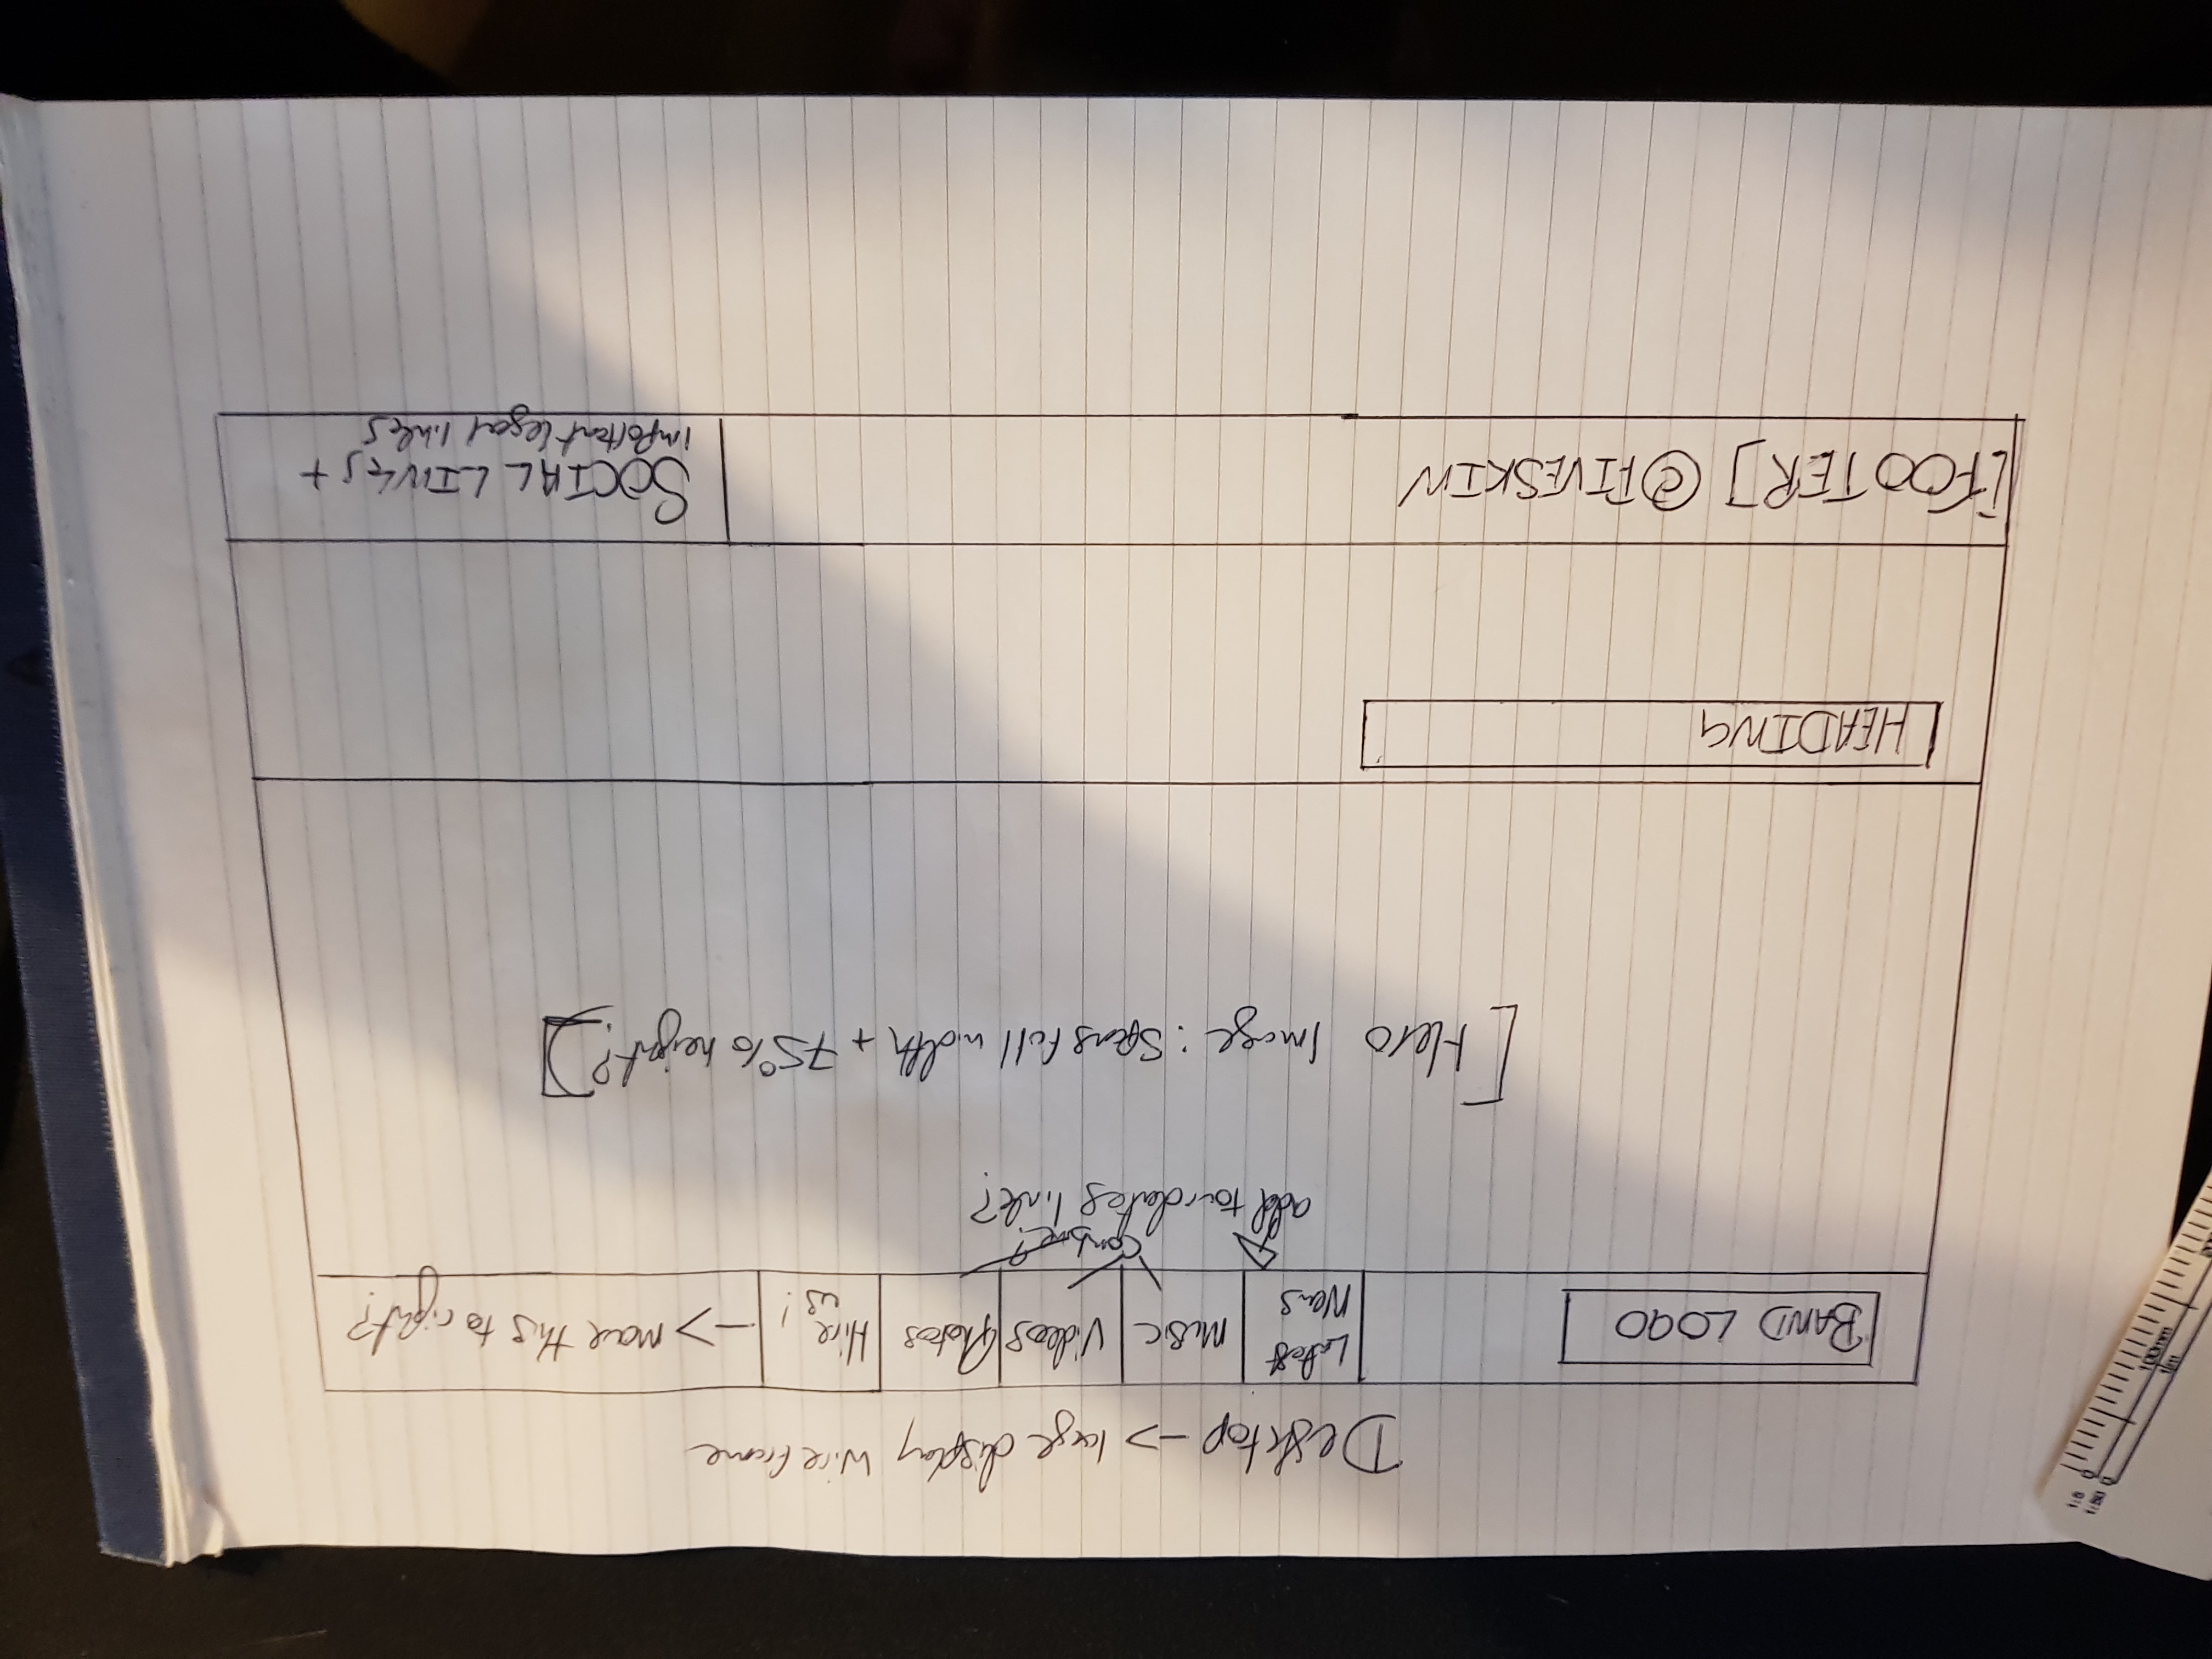 Desktop -> large display wireframe
BAND LOGO
Latest
News
Music
Videos
Photos
Hire
us!
-> move this to right?
Combine?
add tour dates link?
[Hero Image: Spans full width + 75% height?]
HEADING
[FOOTER] © FIVESKIN
SOCIAL LINKS +
important legal links
1:5
1:50
100mm
1m